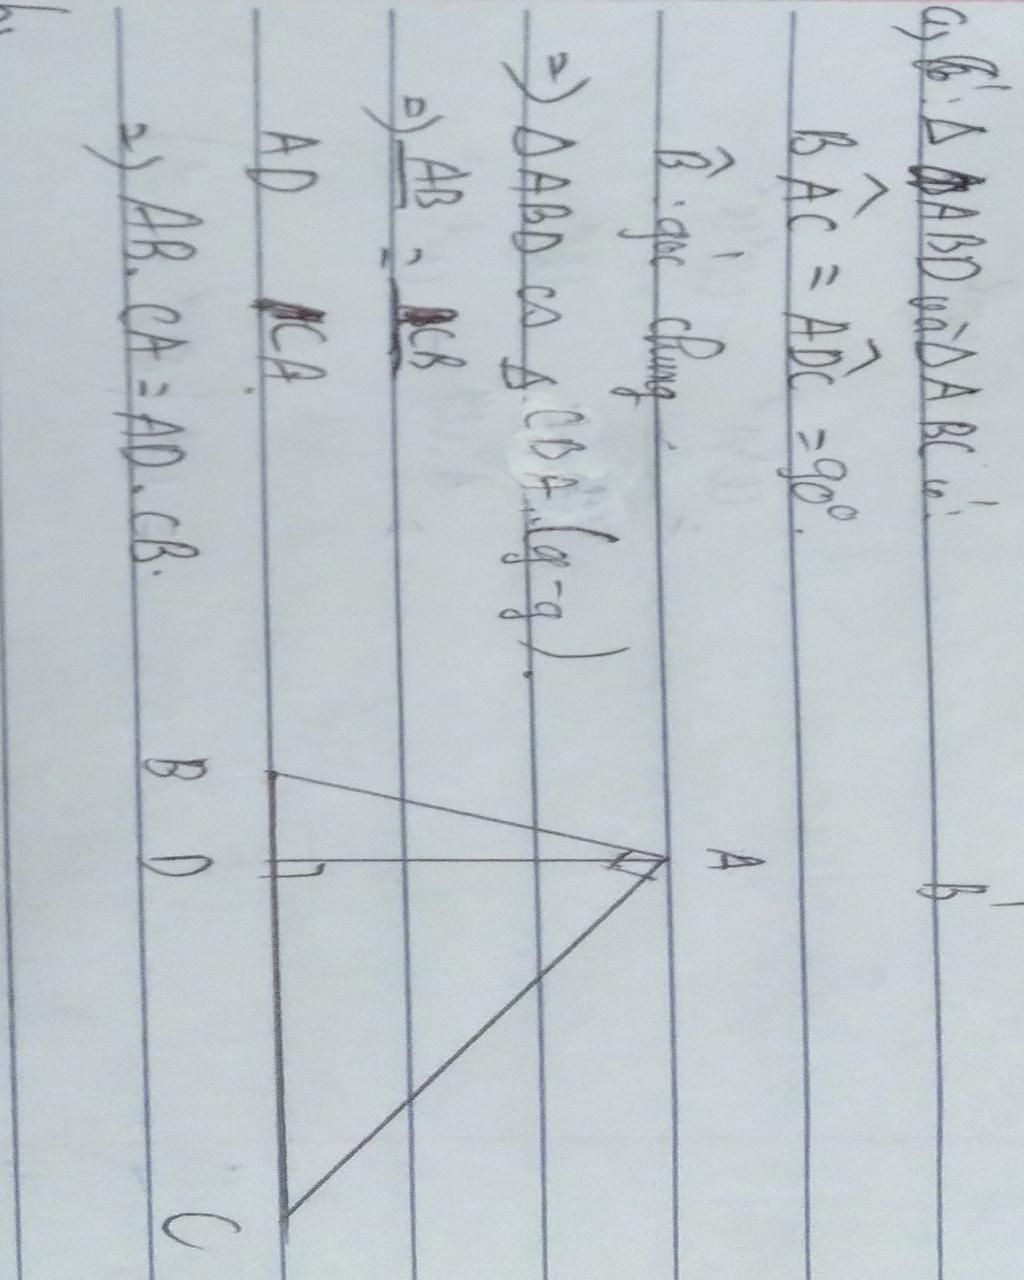 a, Xét Δ ABD và Δ ABC có:
BÂC = AD̂C = 90°.
B̂ góc chung.
=) Δ ABD ∽ Δ CBA (g-g).
=) AB = CB
AD CA
=) AB. CA = AD. CB.
A
B D C
B
b,